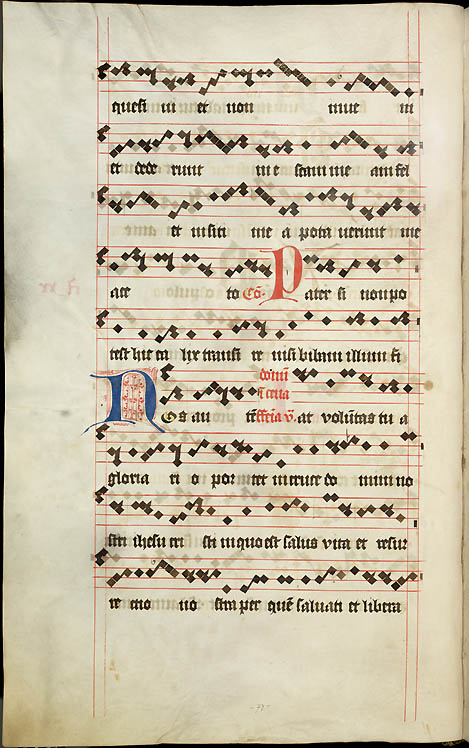 quesi ui et non inue ni
et dede runt in e scam me am fel
et in siti me a pota uerunt me
ace to Cō. Pater si non po
test hic ca lix transi re nisi bibam illum fi
at voluntas tu a
Nos au
gloria ri o por tet in cruce do mini no
stri ihesu cri sti in quo est salus vita et resur
re ctio no stra per quē saluati et libera